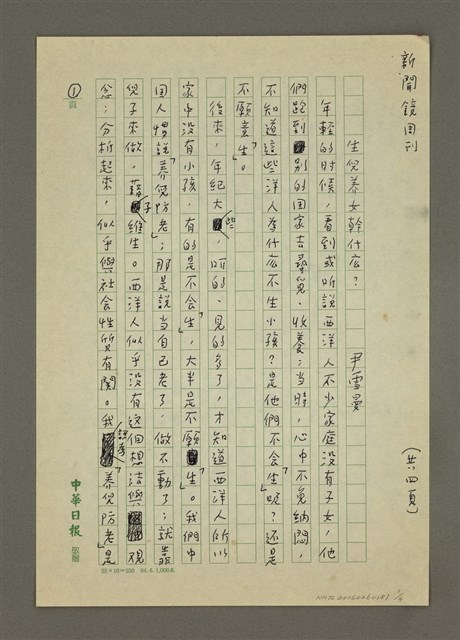 新聞鏡周刊
(共四頁)
生兒養女幹什麽？ 尹雪曼
年輕的时候，看到或听說西洋人不少家庭没有子女，他
們跑到别的国家去尋覓、收養；当時，心中不免納悶，
不知道這些洋人為什麽不生小孩？是他們不会「生」呢？还是
不願意「生」。
後來，年紀大些，听的、見的多了，才知道西洋人所以
家中没有小孩，有的是不会「生」，大半是不願「生」。我們中
国人慣說「養兒防老」；那是說当自己老了，做不動了；就靠
兒子來做，藉子維生。西洋人似乎没有這個想法與觀
念；分析起來，似乎與社会性質有関。我認為「養兒防老」是
①
頁
中華日報
稿牋
25×10=250 84.6.1,000本
1/4